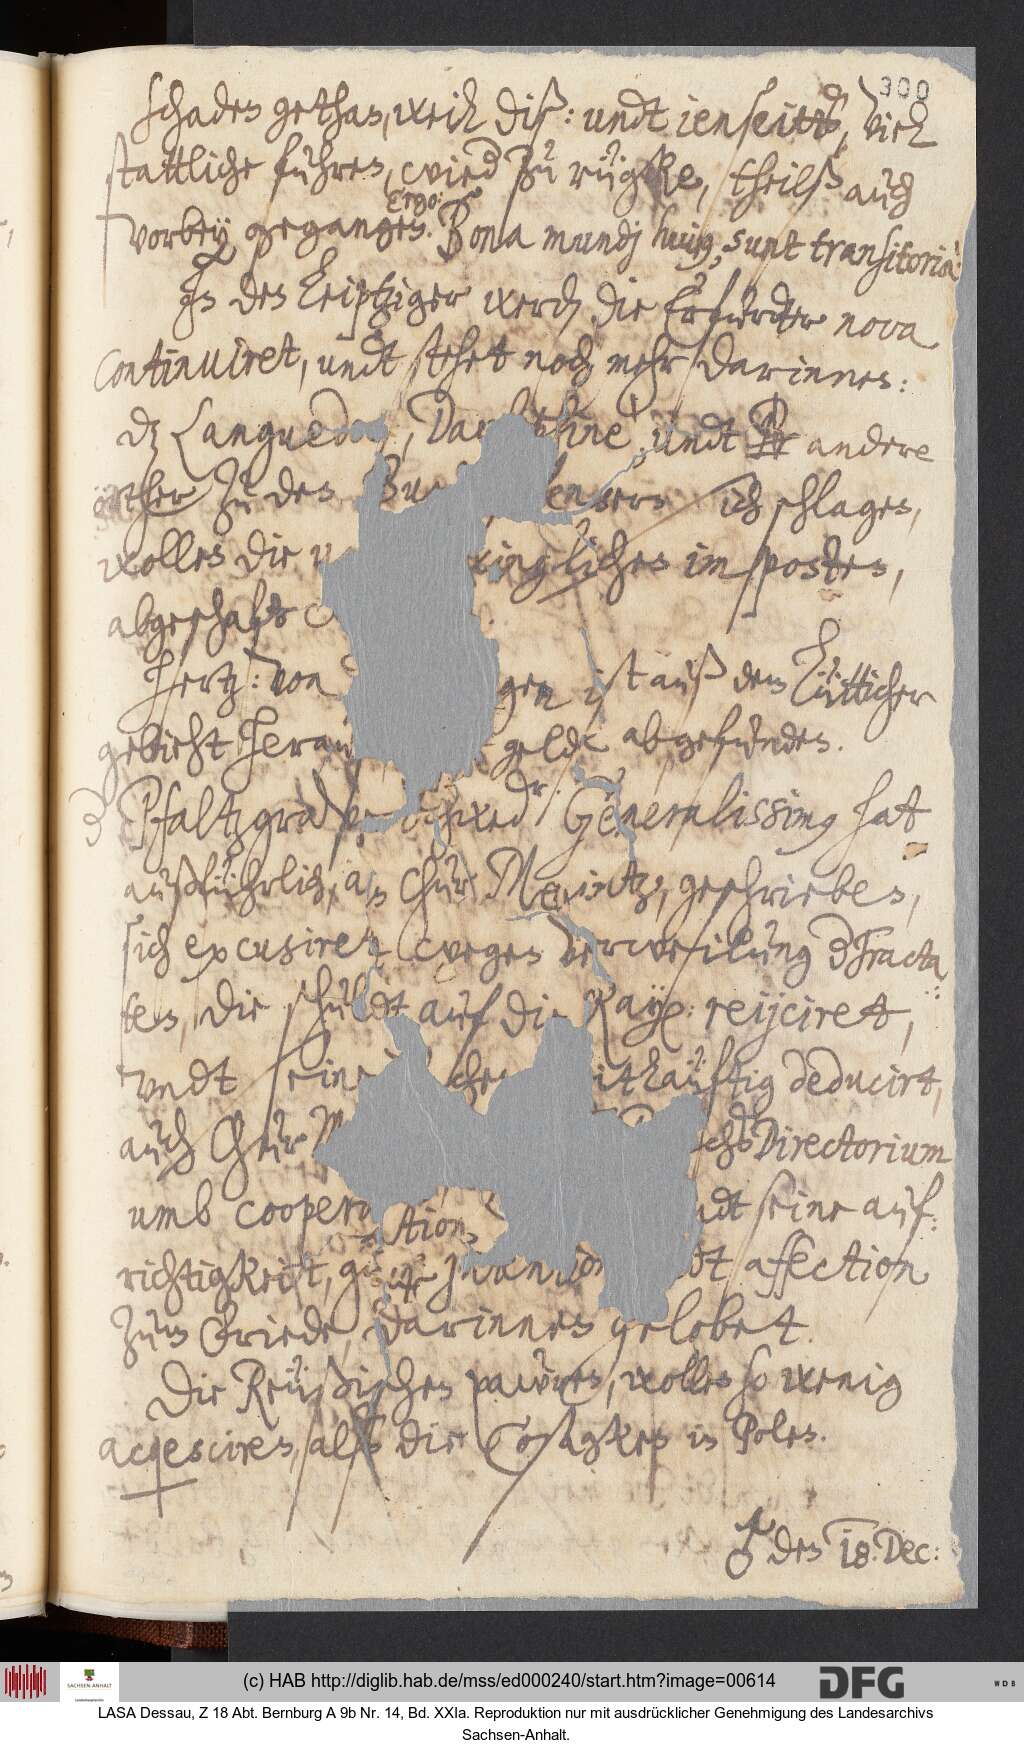 300
schaden gethan, weil diß: undt ienseitts, viel
stattliche fuhren, wied zu rügkke, theilß auch
vorbey gegangen. Ergo: Bona mundj huius, sunt transitoria.
In den Leiptziger werd die Erfurdter nova
continuiret, undt stehet noch mehr darinnen:
dz Langued , Da phine undt andere
örther zu den Bu lensern sich schlagen,
wollen die u ringlichen imposten,
abgeschaft
Hertz: von gen ist auß dem Lütticher
gebieht herau gelde abgefunden.
Pfaltzgra dr. Generalissimus hat
außführlich, an Chur Meintz, geschrieben,
sich excusiret wegen verweilung d Tracta
ten, die schuldt auf die Kayß: reijciret,
undt seine che itläuftig deducirt,
auch Chur M chs Directorium
umb coopera tion, dt seine auf:
richtigkeit, gu dt affection
zum Friede, darinnen gelobet.
Die Reußischen pawren, wollen so wenig
acqesciren, alß die Cosagken in Polen.
♂ den 18. Dec:
(c) HAB http://diglib.hab.de/mss/ed000240/start.htm?image=00614
SACHSEN-ANHALT
DFG
WDB
LASA Dessau, Z 18 Abt. Bernburg A 9b Nr. 14, Bd. XXIa. Reproduktion nur mit ausdrücklicher Genehmigung des Landesarchivs
Sachsen-Anhalt.